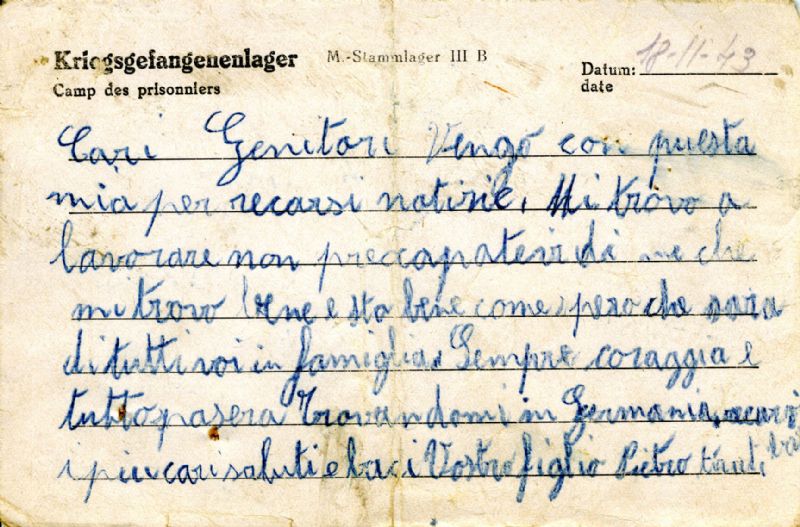 Kriegsgefangenenlager M.-Stammlager III B
Camp des prisonniers
Datum: 18-11-43
date
Cari Genitori Vengo con questa
mia per recarsi notizie. Mi trovo a
lavorare non preccapateiv di me che
mi trovo bene e sto bene come spero che sara
di tutti voi in famiglia. Sempre coraggia e
tutto pasera Trovandomi in Germania,
i piu cari saluti e baci Vostro figlio Pietro tanti